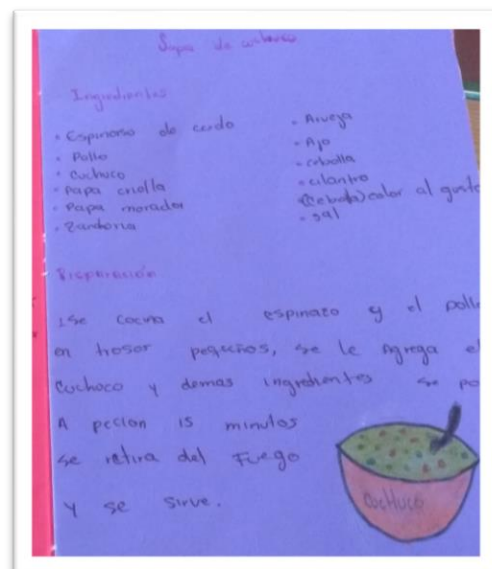 Sopa de cuchuco
Ingredientes
• Espinoso de cerdo
• Pollo
• Cuchuco
• Papa criolla
• Papa morador
• Zanhoria
• Arveja
• Ajo
• cebolla
• cilantro
color al guste
• sal
Preparación
1 se cocina el espinazo y el poll
en trosos pequeños, se le Agrega e
Cuchoco y demas ingredientes se po
A pecion 15 minutos
se retira del Fuego
y se sirve.
CucHuco